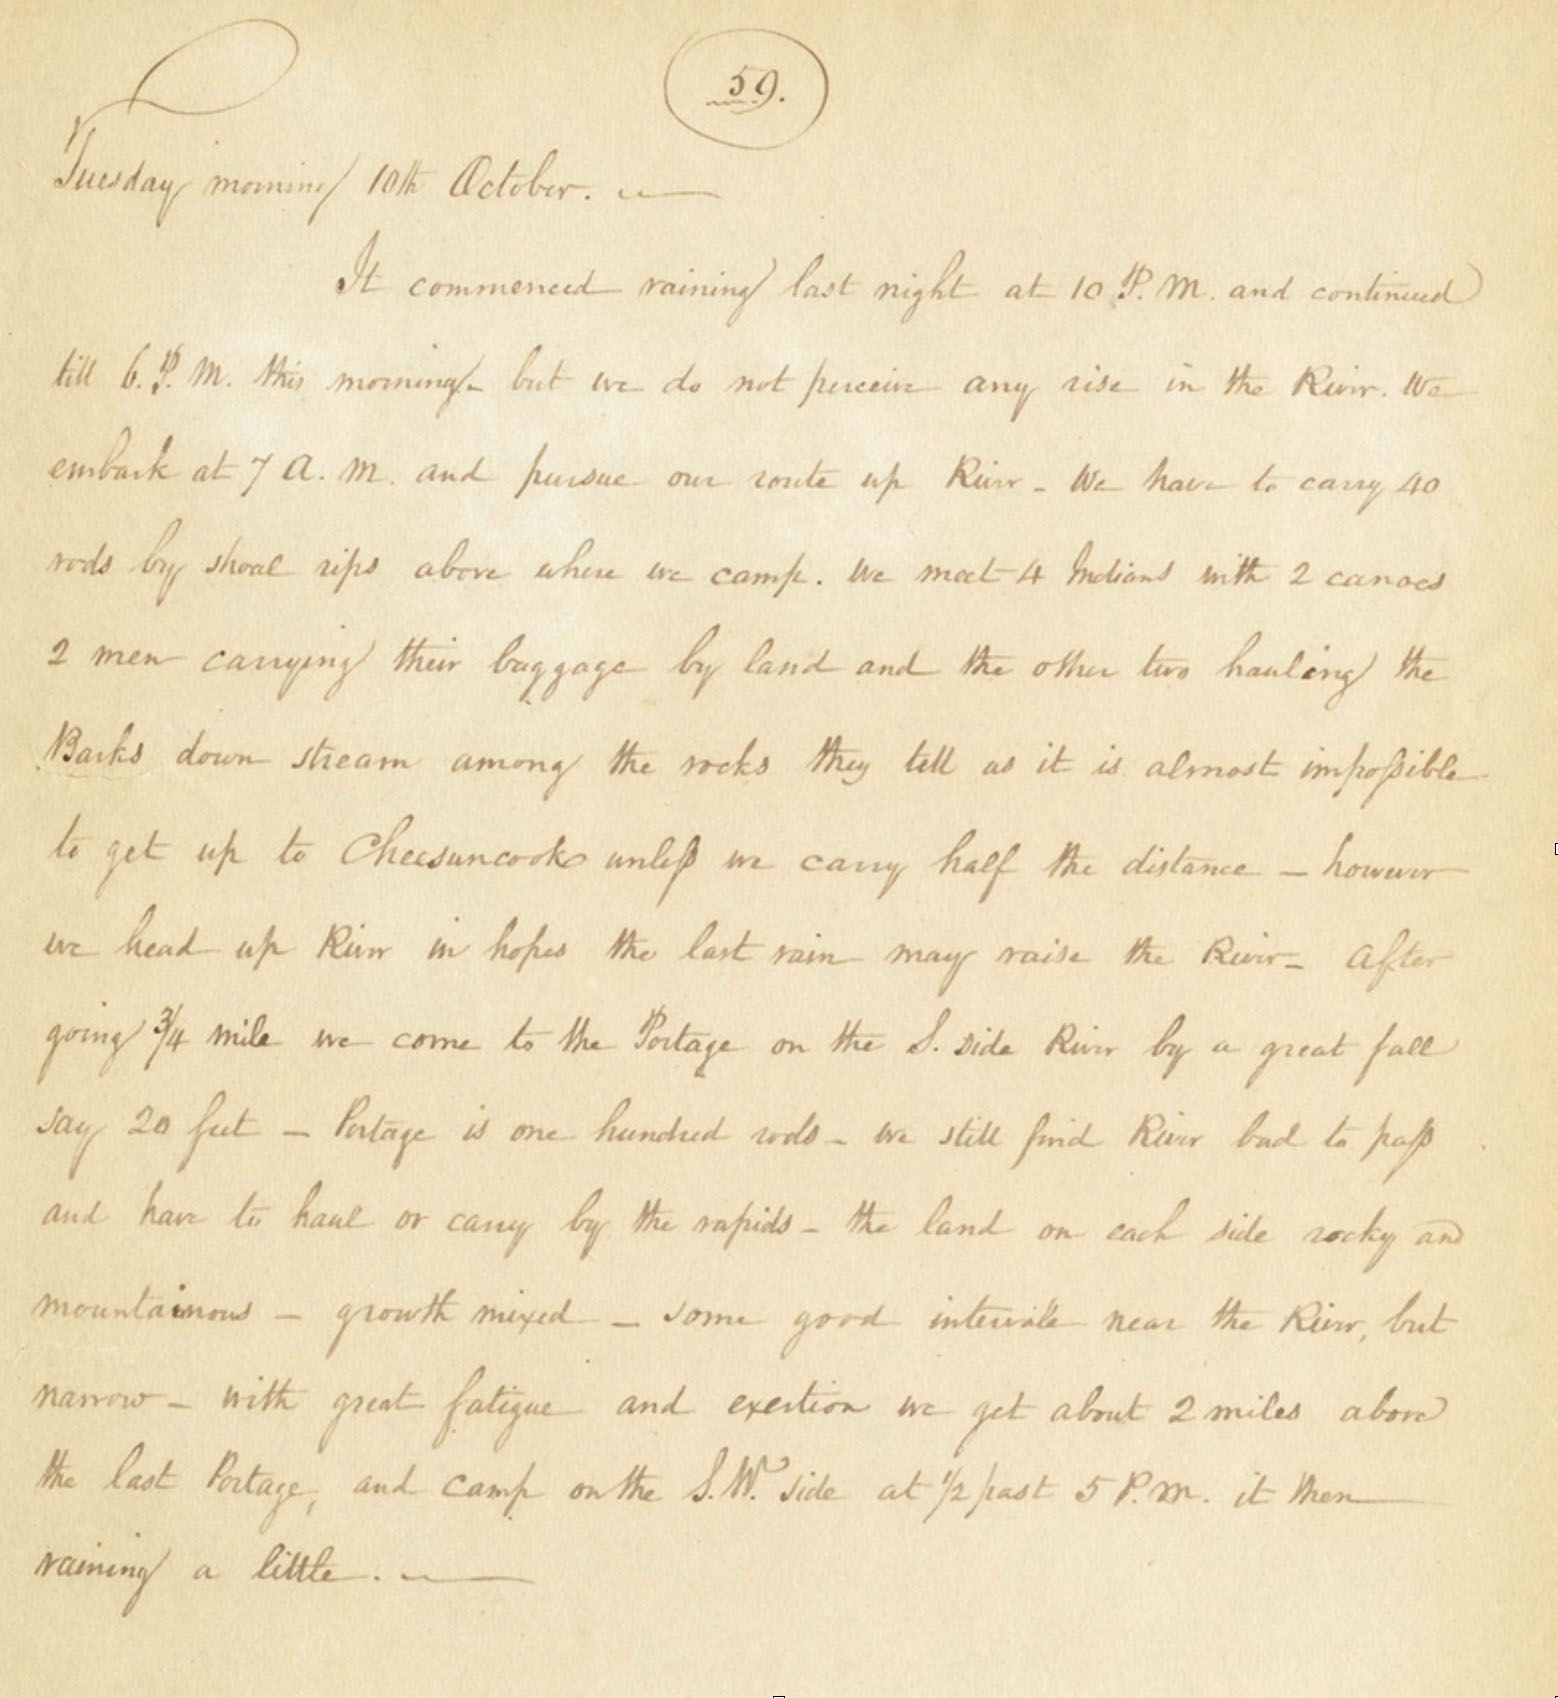 59.
Tuesday morning 10th October.
It commenced raining last night at 10 P.M. and continued
till 6. P.M. this morning - but we do not perceive any rise in the River. We
embark at 7 A.M. and pursue our route up River - We have to carry 40
rods by shoal rips above where we camp. We meet 4 Indians with 2 canoes
2 men carrying their baggage by land and the other two hauling the
Barks down stream among the rocks they tell us it is almost impossible
to get up to Cheesuncook unless we carry half the distance - however
we head up River in hopes the last rain may raise the River - After
going 3/4 mile we come to the Portage on the S. side River by a great fall
say 20 feet - Portage is one hundred rods - we still find River bad to pass
and have to haul or carry by the rapids - the land on each side rocky and
mountainous - growth mixed - some good intervale near the River, but
narrow - with great fatigue and exertion we get about 2 miles above
the last Portage, and camp on the S.W. side at 1/2 past 5 P.M. it then
raining a little.